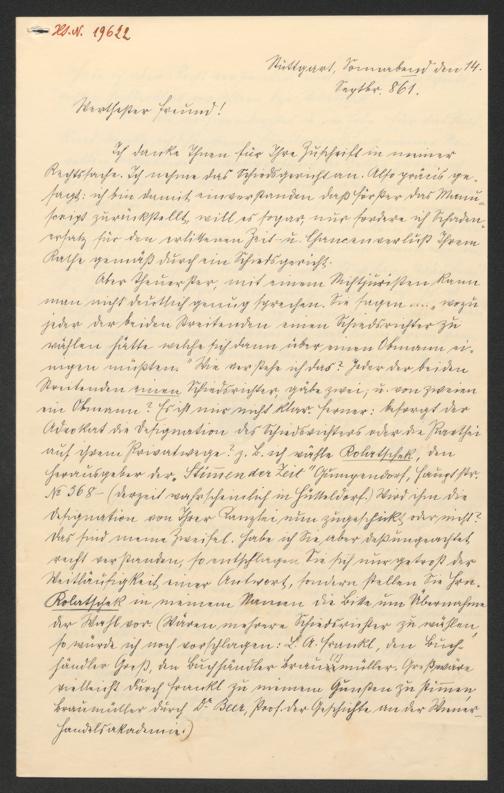 H.I.N. 19622
Stuttgart, Sonnabend den 14.
Septbr. 861.
Werthester Freund!
Ich danke Ihnen für Ihre Zuschrift in meiner
Rechtssache. Ich nehme das Schiedsgericht an. Also präcis ge-
sagt: ich bin damit einverstanden daß Förster das Manu-
script zurückstellt, will es sogar, nur fordere ich Schaden-
ersatz für den erlittenen Zeit- u. Chancenverlust Ihrem
Rathe gemäß durch ein Schiedsgericht.
Aber Theuerster, mit einem Nichtjuristen kann
man nicht deutlich genug sprechen. Sie sagen „.... wozu
jeder der beiden Streitenden einen Schiedsrichter zu
wählen hätte welche sich dann über einen Obmann ei-
nigen müßten." Wie verstehe ich das? Jeder der beiden
Streitenden einen Schiedsrichter, gäbe zwei; u. von zweien
ein Obmann? Es ist mir nicht klar. Ferner: besorgt der
Advokat die Designation des Schiedsrichters oder die Parthei
auf ihrem Privatwege? z. B. ich wählte Kolatschek, den
Herausgeber der „Stimmen der Zeit" Gumpendorf, Hauptstr.
№ 368 – (derzeit wahrscheinlich in Hütteldorf.) Wird ihm die
Designation von Ihrer Kanzlei nun zugeschickt oder nicht?
Das sind meine Zweifel. Habe ich Sie aber dessungeachtet
recht verstanden, so entschlagen Sie sich nur getrost der
Weitläufigkeit einer Antwort, sondern stellen Sie Hrn.
Kolatschek in meinem Namen die Bitte um Übernahme
der Wahl vor (Wären mehrere Schiedsrichter zu wählen,
so würde ich noch vorschlagen: L. A. Frankl, den Buch-
händler Greß, den Buchhändler Braumüller. Greß wäre
vielleicht durch Frankl zu meinem Gunsten zu stimmen,
Braumüller durch Dr Beer, Prof. der Geschichte an der Wiener-
Handelsakademie.)